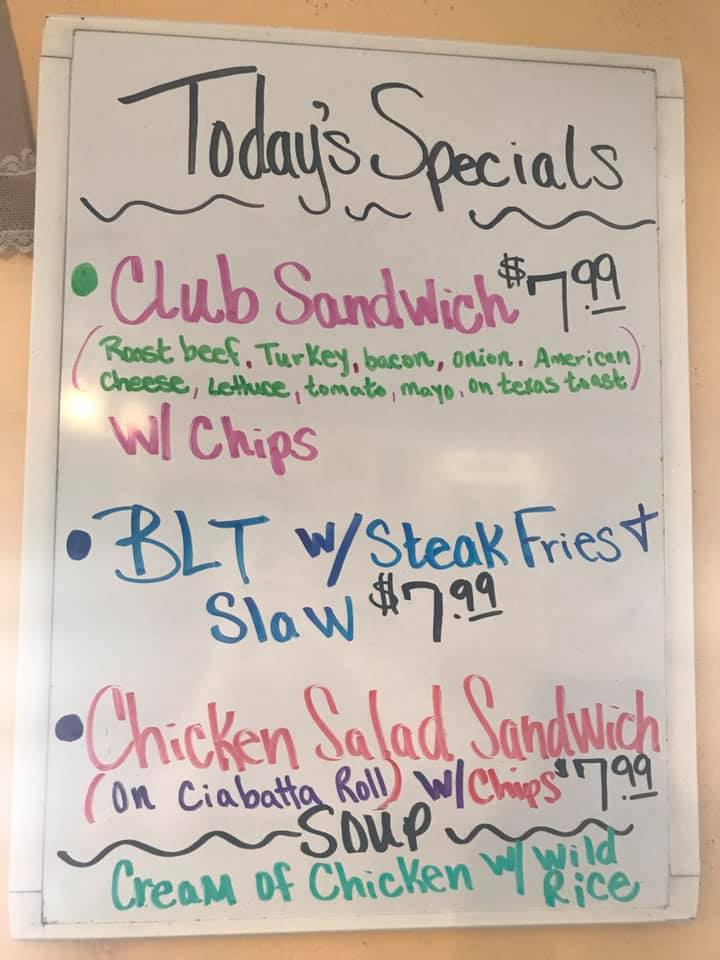 Today's Specials
• Club Sandwich $7.99
(Roast beef, Turkey, bacon, onion, American
cheese, Lettuce, tomato, mayo, on texas toast)
W/ Chips
• BLT w/ Steak Fries +
Slaw $7.99
• Chicken Salad Sandwich
(On Ciabatta Roll) W/ Chips $7.99
SOUP
Cream of Chicken w/ Wild
Rice